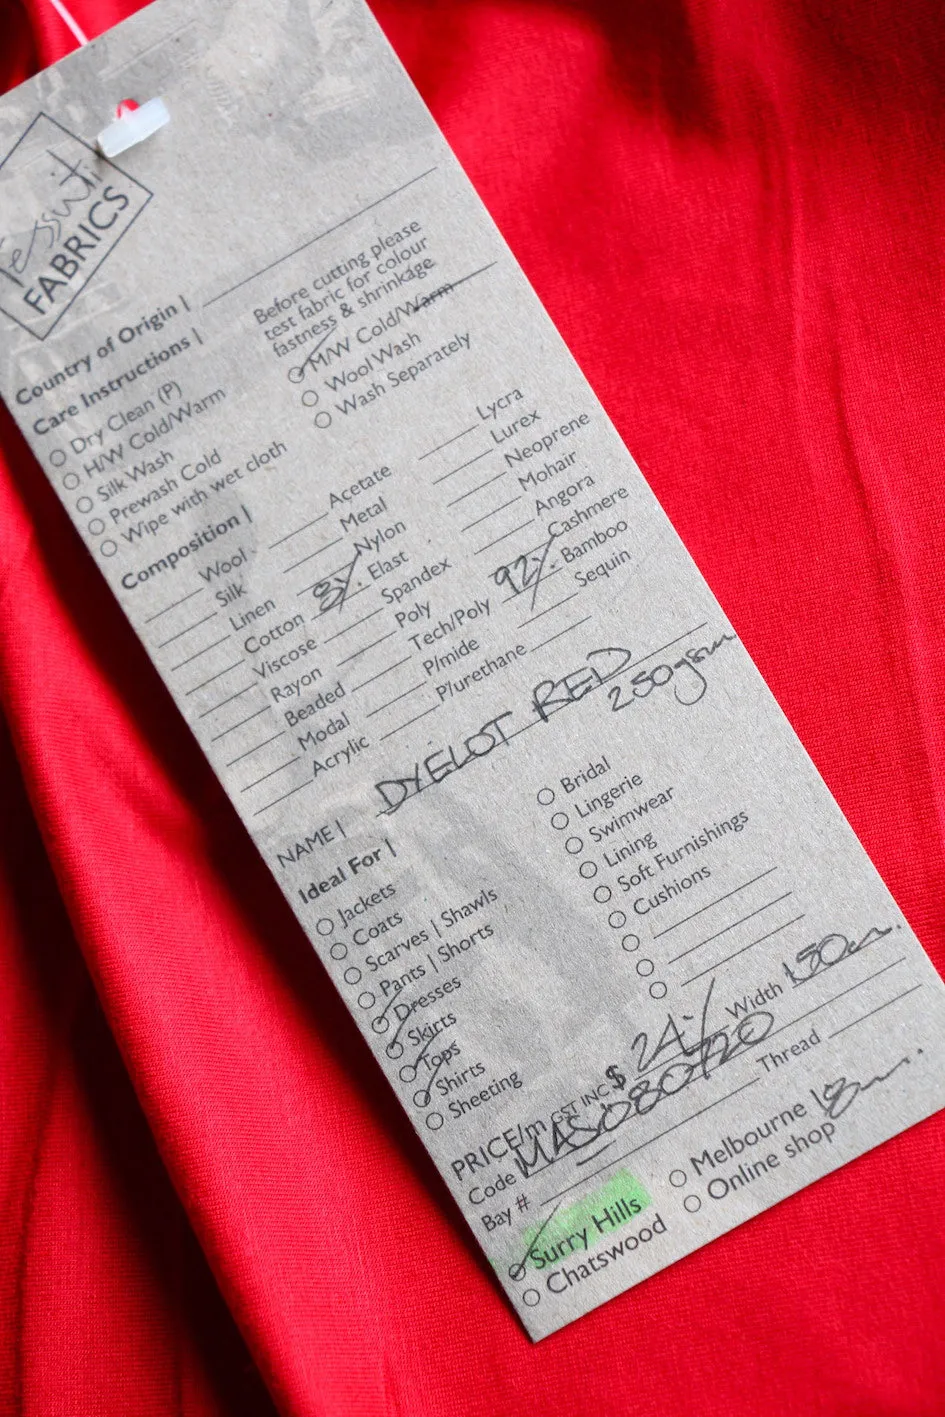 Tessuti
FABRICS
Country of Origin |
Care Instructions |
Before cutting please
test fabric for colour
fastness & shrinkage
Dry Clean (P)
H/W Cold/Warm
Silk Wash
Prewash Cold
Wipe with wet cloth
M/W Cold/Warm
Wool Wash
Wash Separately
Composition |
Wool
Silk
Linen
Cotton
Viscose
Rayon
Beaded
Modal
Acrylic
Acetate
Metal
Nylon
8% Elast
Spandex
Poly
Tech/Poly
P/mide
P/urethane
Lycra
Lurex
Neoprene
Mohair
Angora
Cashmere
92% Bamboo
Sequin
NAME | DYELOT RED
250gsm
Ideal For |
Jackets
Coats
Scarves | Shawls
Pants | Shorts
Dresses
Skirts
Tops
Shirts
Sheeting
Bridal
Lingerie
Swimwear
Lining
Soft Furnishings
Cushions
PRICE/m GST INC $ 24.- Width 150cm.
Code
Bay #
Thread
Surry Hills
Chatswood
Melbourne
Online shop